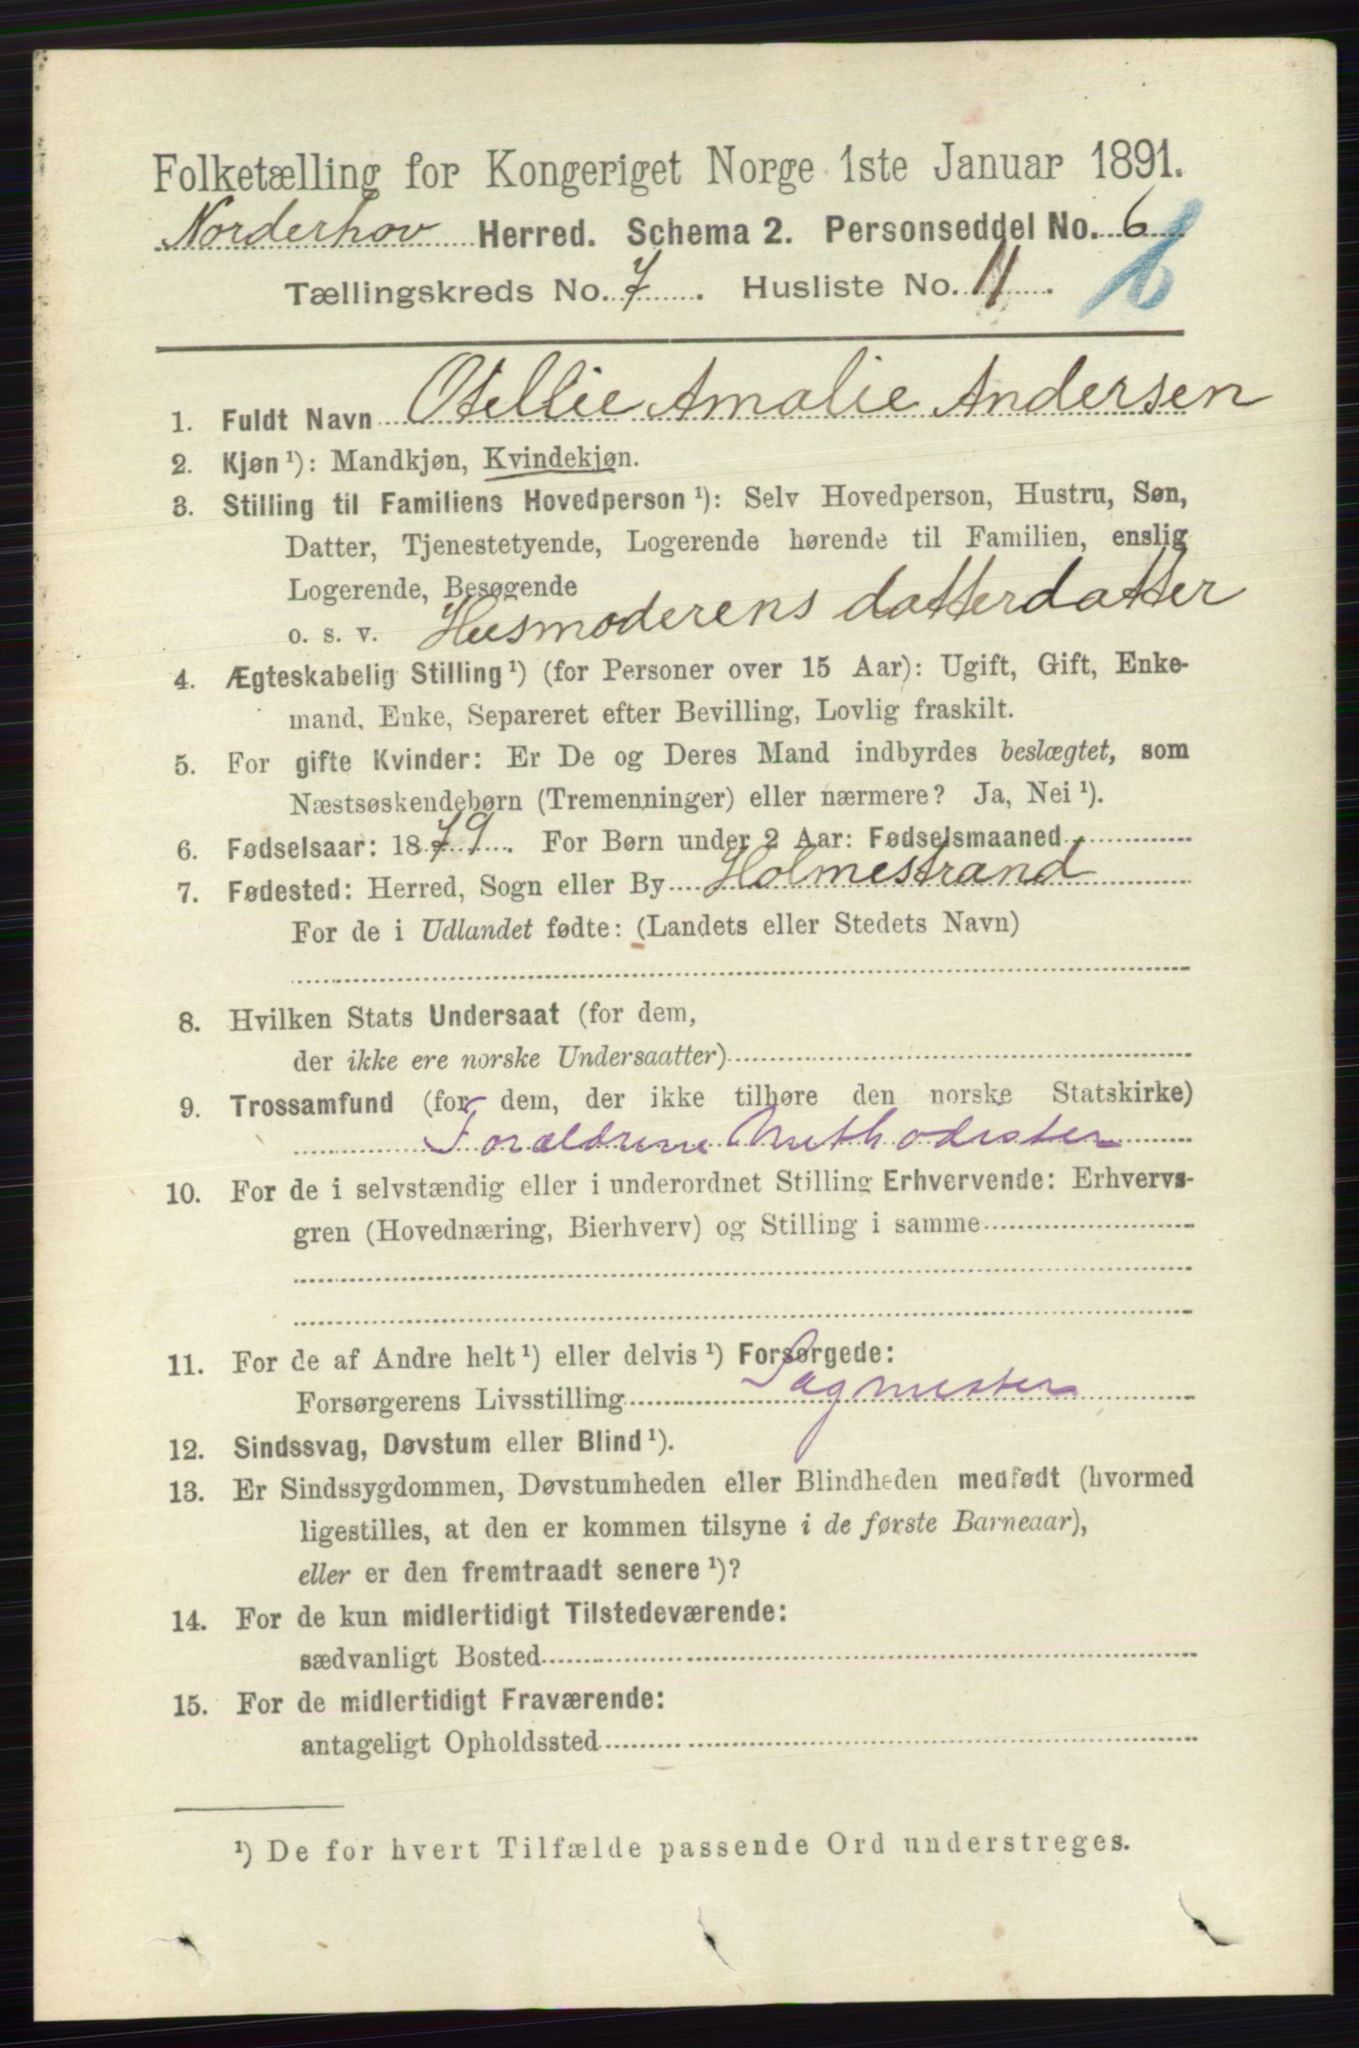 Folketælling for Kongeriget Norge 1ste Januar 1891.
Norderhov Herred. Schema 2. Personseddel No. 6
Tællingskreds No. 7. Husliste No. 11. 6
1. Fuldt Navn Otellie Amalie Andersen
2. Kjøn ¹): Mandkjøn, Kvindekjøn.
3. Stilling til Familiens Hovedperson ¹): Selv Hovedperson, Hustru, Søn,
Datter, Tjenestetyende, Logerende hørende til Familien, enslig
Logerende, Besøgende
o. s. v. Husmoderens datterdatter
4. Ægteskabelig Stilling ¹) (for Personer over 15 Aar): Ugift, Gift, Enke-
mand, Enke, Separeret efter Bevilling, Lovlig fraskilt.
5. For gifte Kvinder: Er De og Deres Mand indbyrdes beslægtet, som
Næstsøskendebørn (Tremenninger) eller nærmere? Ja, Nei ¹).
6. Fødselsaar: 1879. For Børn under 2 Aar: Fødselsmaaned
7. Fødested: Herred, Sogn eller By Holmestrand
For de i Udlandet fødte: (Landets eller Stedets Navn)
8. Hvilken Stats Undersaat (for dem,
der ikke ere norske Undersaatter)
9. Trossamfund (for dem, der ikke tilhøre den norske Statskirke)
Forældrene Methodister
10. For de i selvstændig eller i underordnet Stilling Erhvervende: Erhvervs-
gren (Hovednæring, Bierhverv) og Stilling i samme
11. For de af Andre helt ¹) eller delvis ¹) Forsørgede:
Forsørgerens Livsstilling Sagmester
12. Sindssvag, Døvstum eller Blind ¹).
13. Er Sindssygdommen, Døvstumheden eller Blindheden medfødt (hvormed
ligestilles, at den er kommen tilsyne i de første Barneaar),
eller er den fremtraadt senere ¹)?
14. For de kun midlertidigt Tilstedeværende:
sædvanligt Bosted
15. For de midlertidigt Fraværende:
antageligt Opholdssted
¹) De for hvert Tilfælde passende Ord understreges.